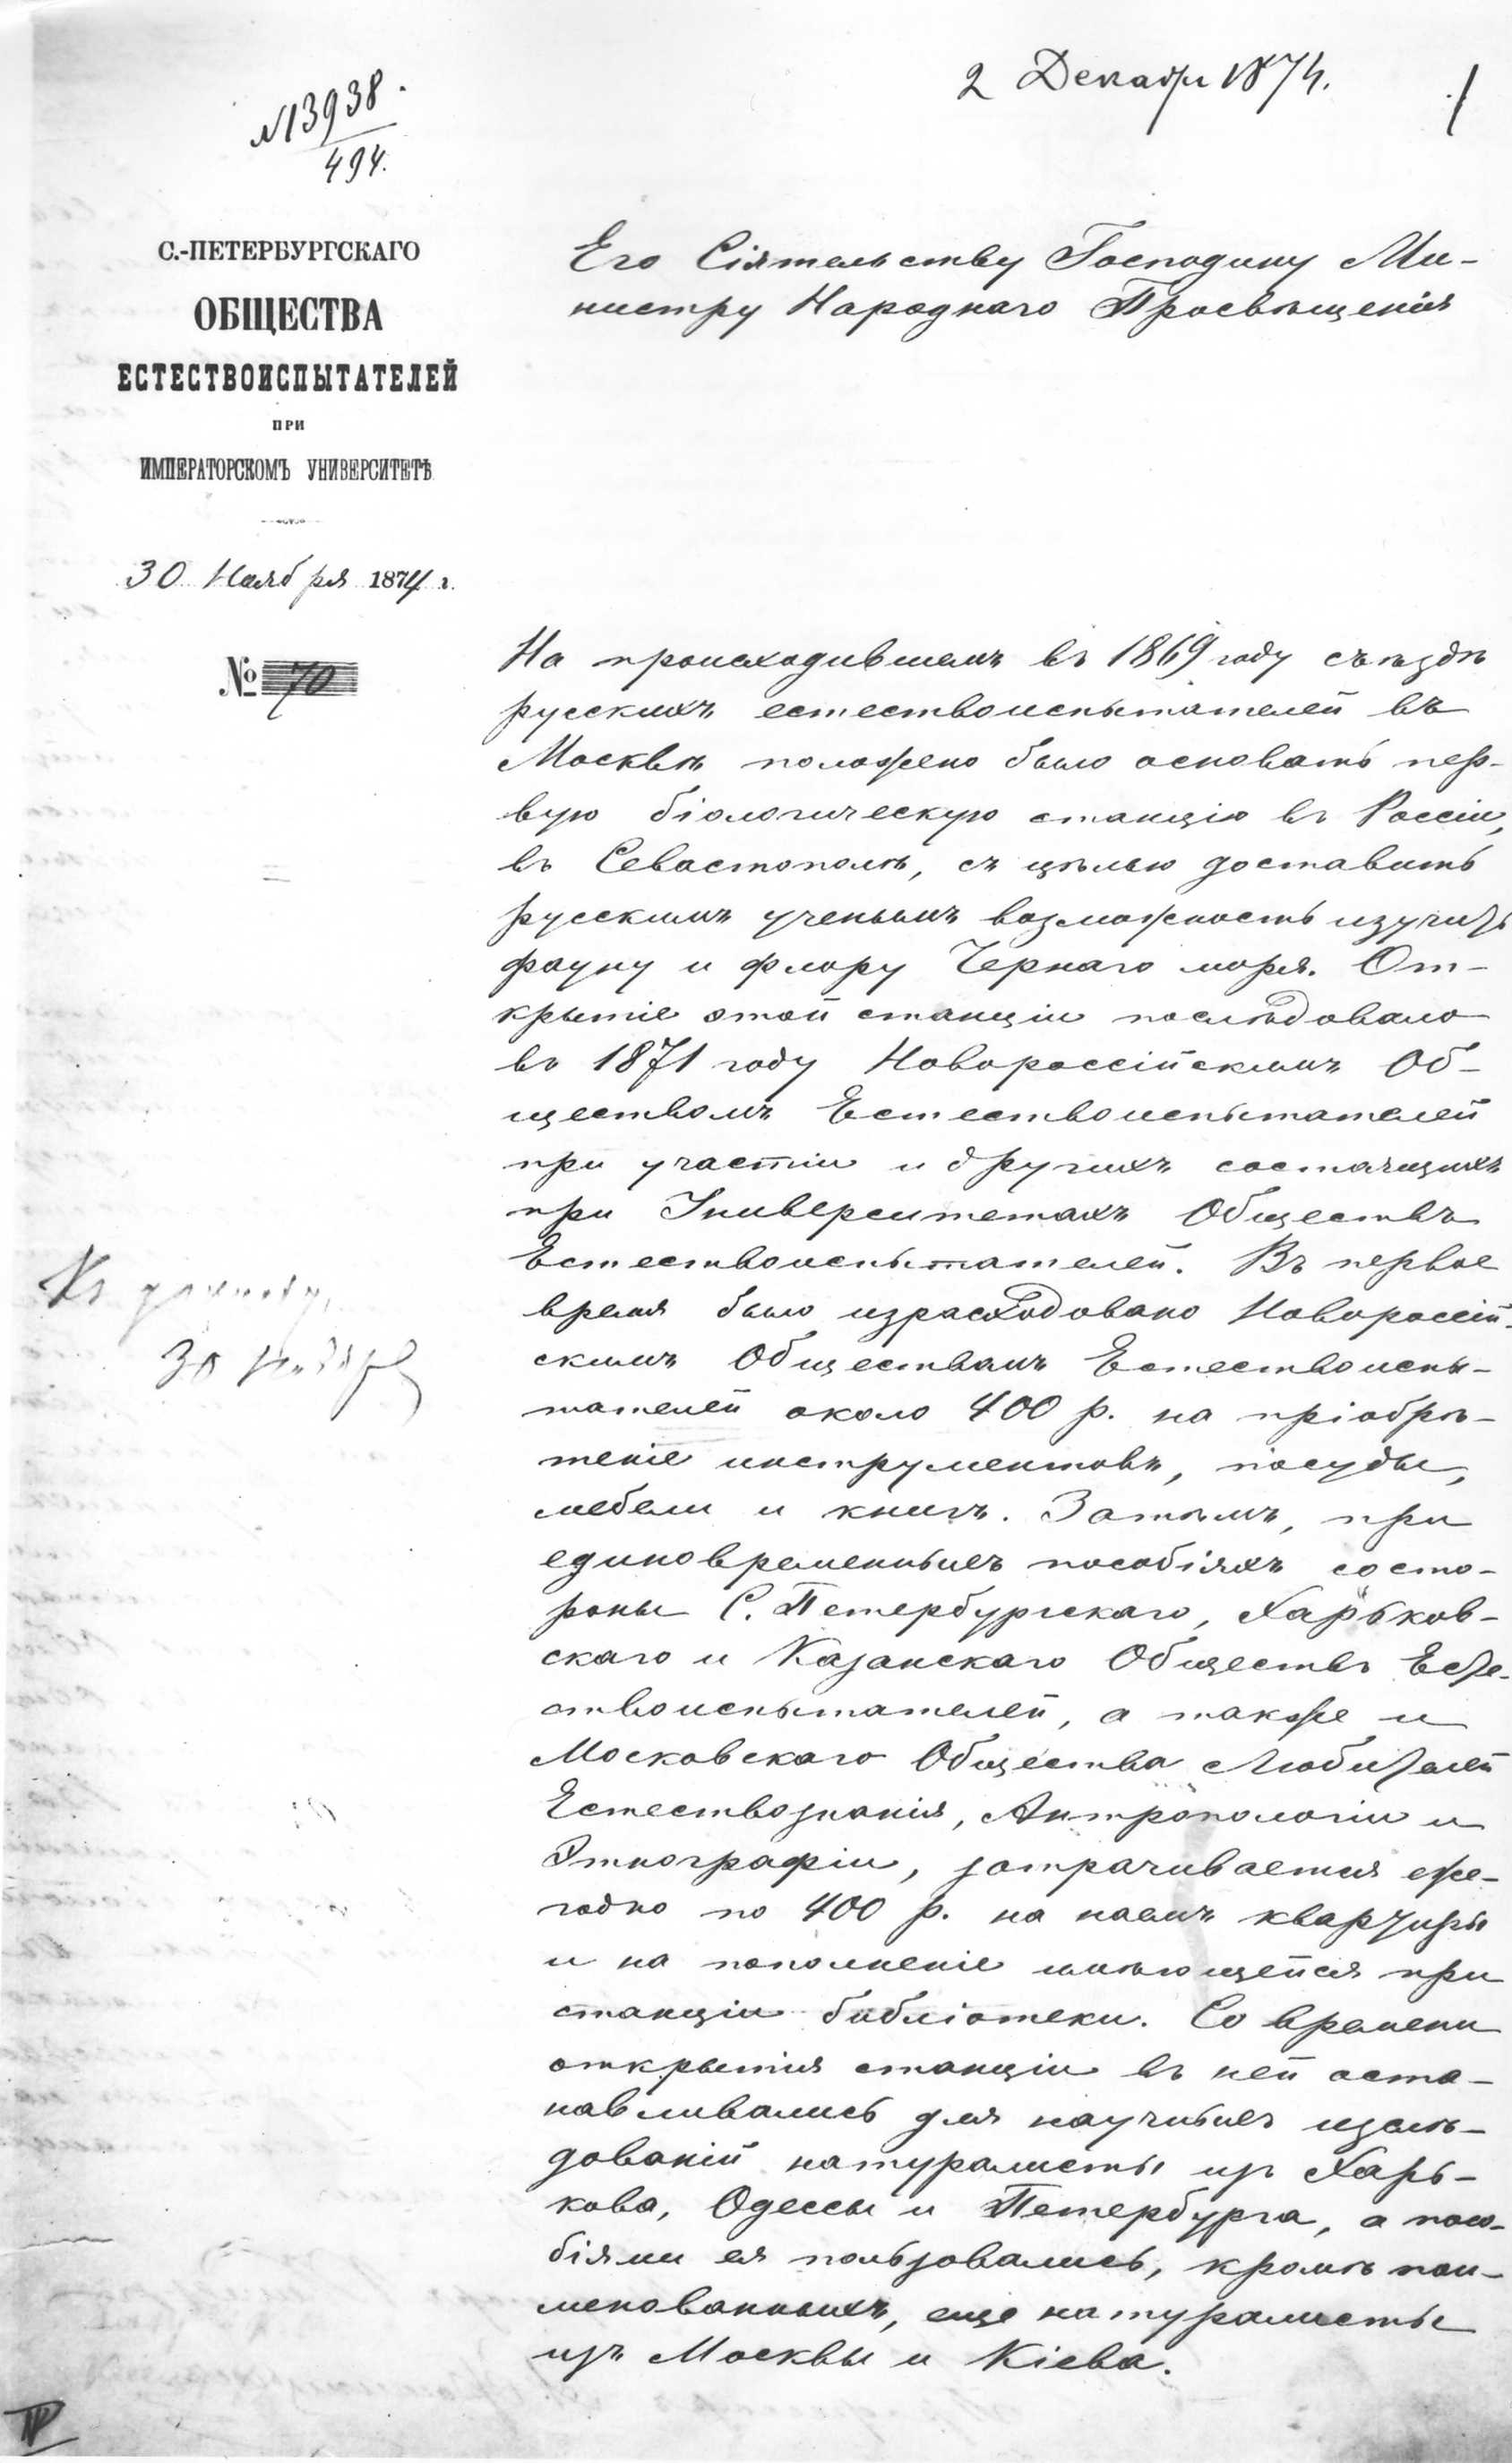 2 Декабря 1874.
№13938.
494.
С.-ПЕТЕРБУРГСКАГО
ОБЩЕСТВА
ЕСТЕСТВОИСПЫТАТЕЛЕЙ
ПРИ
ИМПЕРАТОРСКОМЪ УНИВЕРСИТЕТѢ
30 Ноября 1874 г.
№ 70
Его Сіятельству Господину Ми-
нистру Народнаго Просвѣщенія
На происходившемъ въ 1869 году съѣздѣ
русскихъ естествоиспытателей въ
Москвѣ положено было основать пер-
вую біологическую станцію въ Россіи,
въ Севастополѣ, съ цѣлью доставить
русскимъ ученымъ возможность изучить
фауну и флору Чернаго моря. От-
крытіе этой станціи послѣдовало
въ 1871 году Новороссійскимъ Об-
ществомъ Естествоиспытателей
при участіи и другихъ состоящихъ
при Университетахъ Обществъ
Естествоиспытателей. Въ первое
время было израсходовано Новороссій-
скимъ Обществомъ Естествоиспы-
тателей около 400 р. на пріобрѣ-
теніе инструментовъ, посуды,
мебели и книгъ. Затѣмъ, при
единовременныхъ пособіяхъ со сто-
роны С. Петербургскаго, Харьков-
скаго и Казанскаго Обществъ Есте-
ствоиспытателей, а также и
Московскаго Общества Любителей
Естествознанія, Антропологіи и
Этнографіи, затрачивается еже-
годно по 400 р. на наемъ квартиры
и на пополненіе имѣющейся при
станціи библіотеки. Со времени
открытія станціи въ ней оста-
навливались для научныхъ изслѣ-
дованій натуралисты изъ Харь-
кова, Одессы и Петербурга, а посо-
біями ея пользовались, кромѣ пои-
менованныхъ, еще натуралисты
изъ Москвы и Кіева.
Къ докладу,
30 Ноября
IV